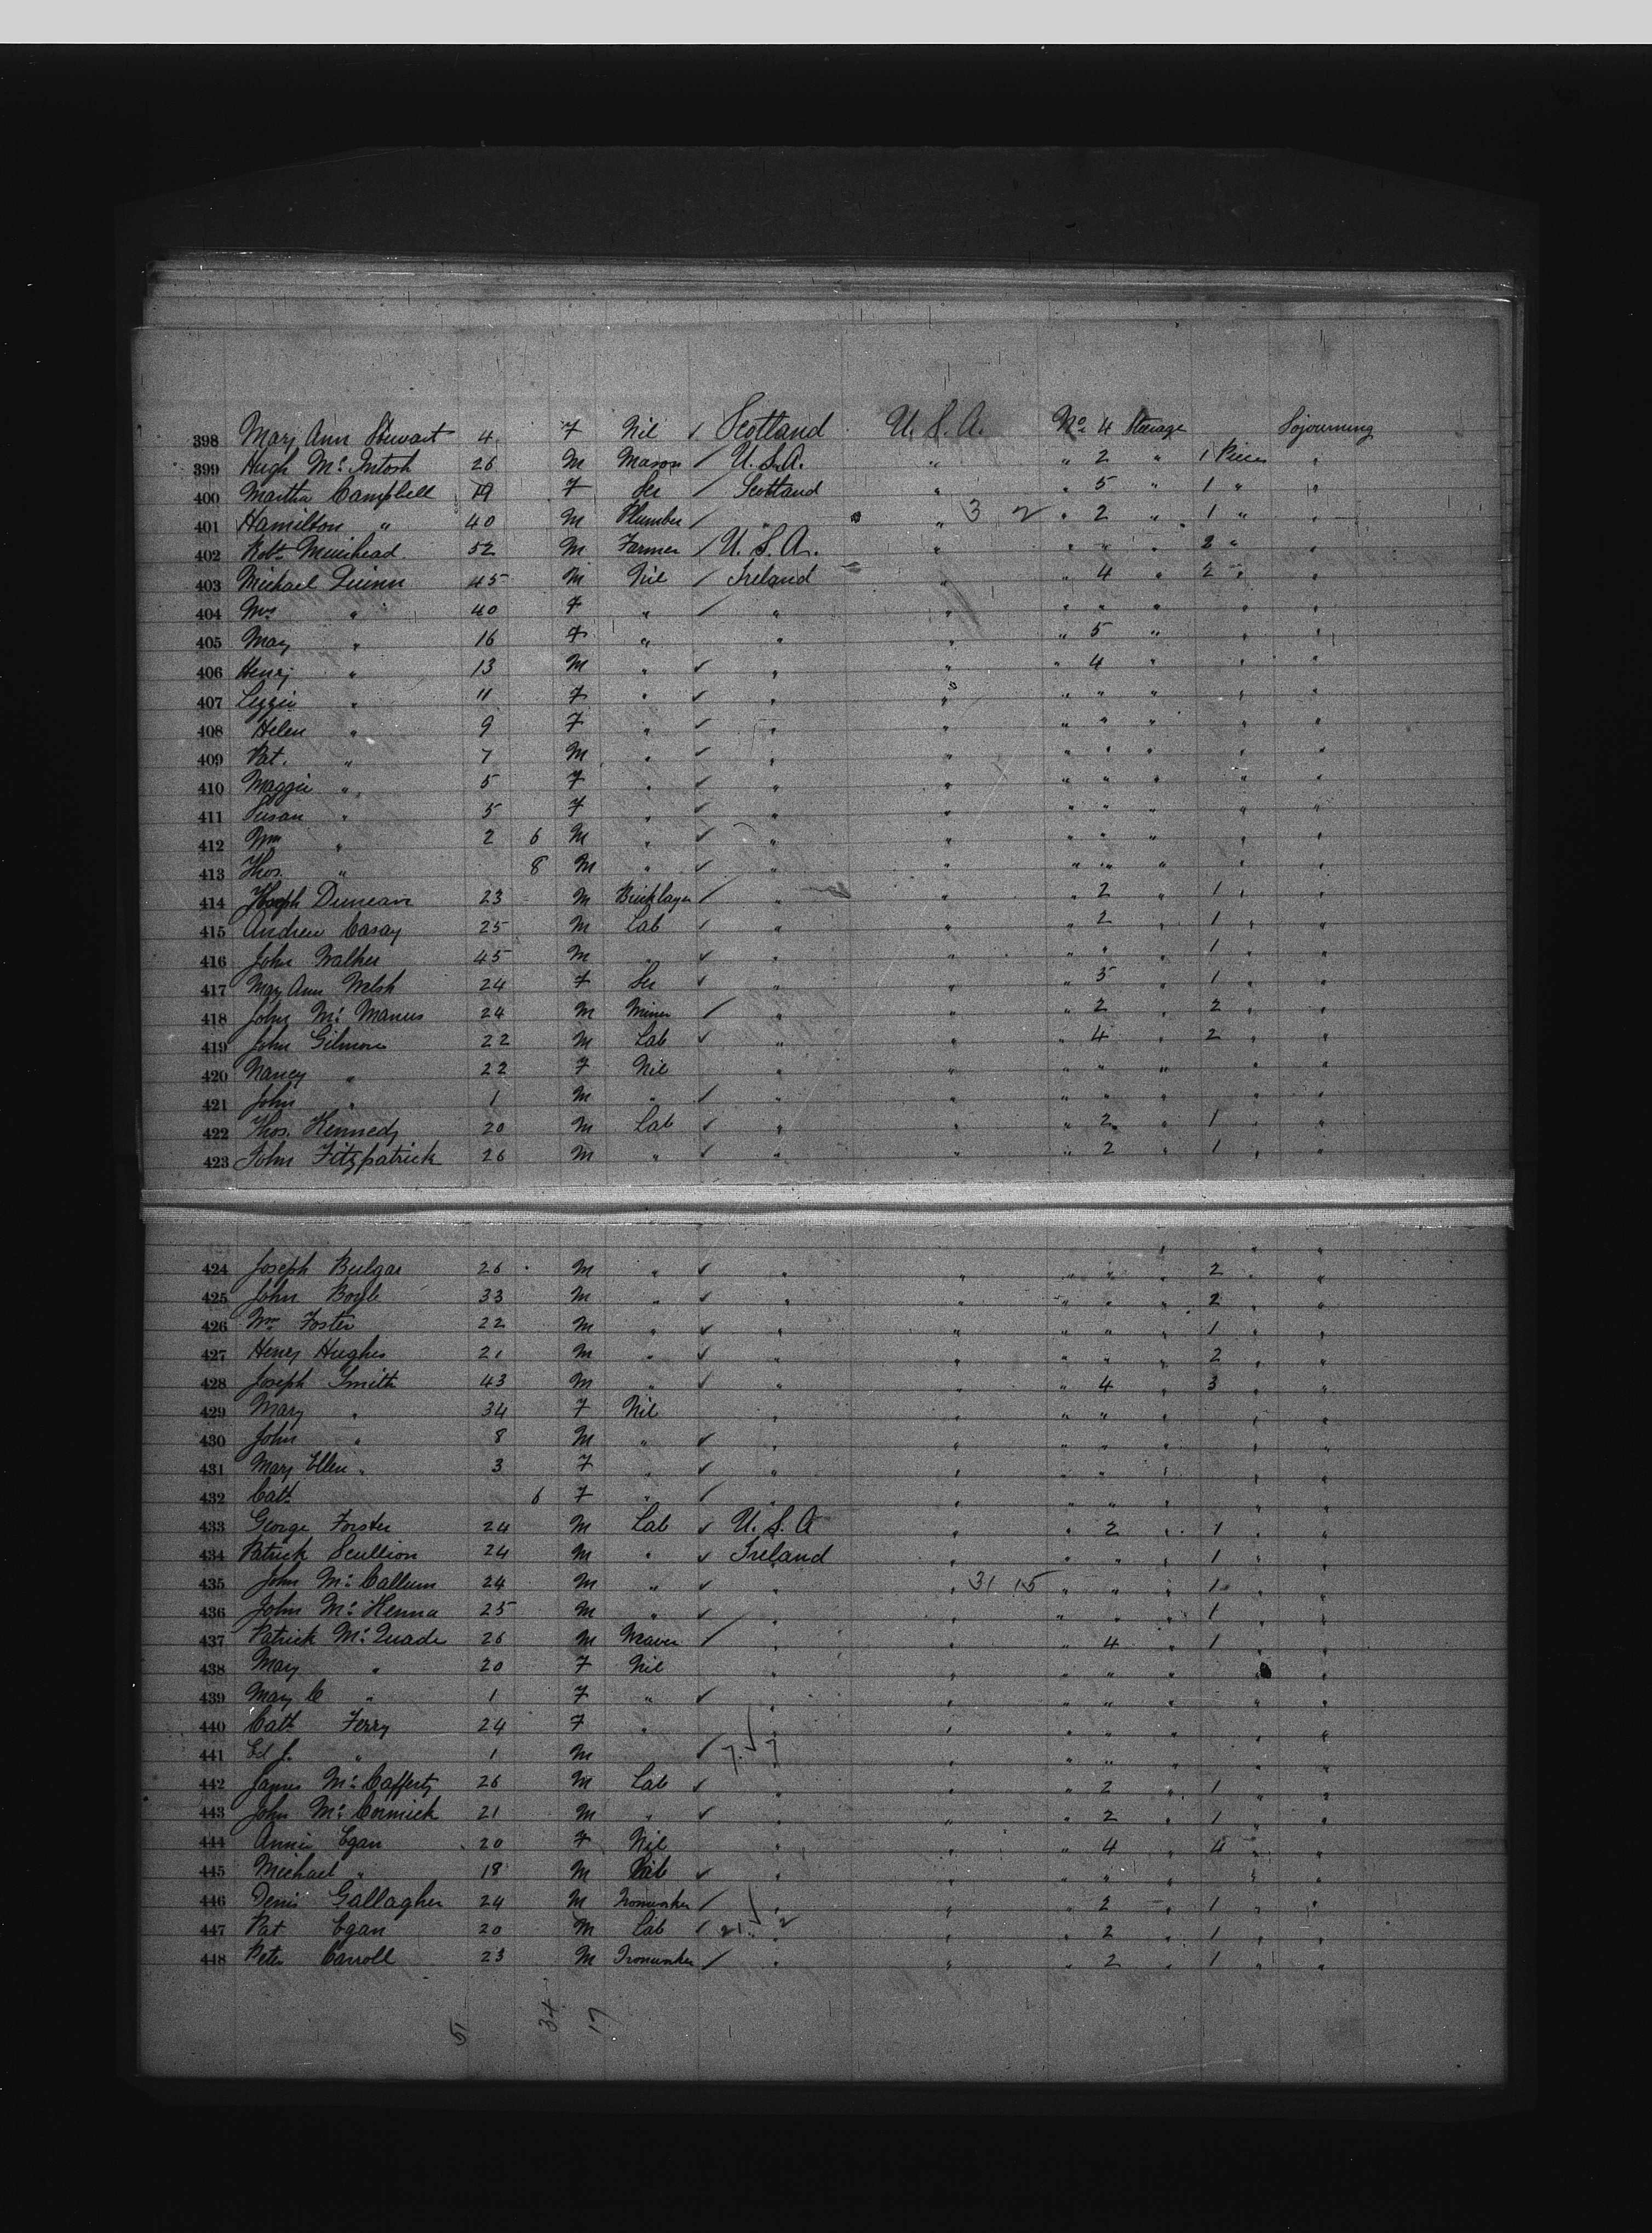 398 Mary Ann Stewart 4 F Nil ✓ Scotland U.S.A. No. 4 Steerage Sojourning
399 Hugh McIntosh 26 M Mason ✓ U.S.A. " " 2 " 1 Piece "
400 Martha Campbell 19 F Ser ✓ Scotland " " 5 " 1 " "
401 Hamilton " 40 M Plumber ✓ " " 3 2 " 2 " 1 " "
402 Robt Muirhead 52 M Farmer ✓ U.S.A. " " " " 2 " "
403 Michael Quinn 45 M Nil ✓ Ireland " " 4 " 2 " "
404 Mrs " 40 F " ✓ " " " " " " "
405 Mary " 16 F " " " " 5 " " "
406 Henry " 13 M " ✓ " " " 4 " " "
407 Lizzie " 11 F " ✓ " " " " " " "
408 Helen " 9 F " ✓ " " " " " " "
409 Pat. " 7 M " ✓ " " " " " " "
410 Maggie " 5 F " ✓ " " " " " " "
411 Susan " 5 F " ✓ " " " " " " "
412 Wm " 2 6 M " ✓ " " " " " " "
413 Thos. " 8 M " ✓ " " " " " " "
414 Joseph Duncan 23 M Bricklayer ✓ " " " 2 " 1 " "
415 Andrew Casay 25 M Lab ✓ " " " 2 " 1 " "
416 John Walker 45 M " ✓ " " " " " 1 " "
417 Mary Ann Welsh 24 F Ser ✓ " " " 5 " 1 " "
418 John McManus 24 M Miner ✓ " " " 2 " 2 " "
419 John Gilmore 22 M Lab ✓ " " " 4 " 2 " "
420 Nancy " 22 F Nil " " " " " " "
421 John " 1 M " ✓ " " " " " " "
422 Thos. Kennedy 20 M Lab ✓ " " " 2 " 1 " "
423 John Fitzpatrick 26 M " ✓ " " " 2 " 1 " "
424 Joseph Bulgar 26 M " ✓ " " " " " 2 " "
425 John Boyle 33 M " ✓ " " " " " 2 " "
426 Wm Foster 22 M " ✓ " " " " " 1 " "
427 Henry Hughes 21 M " ✓ " " " " " 2 " "
428 Joseph Smith 43 M " ✓ " " " 4 " 3 " "
429 Mary " 34 F Nil " " " " " " "
430 John " 8 M " ✓ " " " " " " "
431 Mary Ellen " 3 F " ✓ " " " " " " "
432 Cath 6 F " ✓ " " " " " " "
433 George Forster 24 M Lab ✓ U.S.A " " 2 " 1 " "
434 Patrick Scullion 24 M " ✓ Ireland " " " " 1 " "
435 John McCallum 24 M " ✓ " " 31 15 " " " 1 " "
436 John McKenna 25 M " ✓ " " " " " 1 " "
437 Patrick McQuade 26 M Weaver ✓ " " " 4 " 1 " "
438 Mary " 20 F Nil " " " " " " "
439 Mary C " 1 F " ✓ " " " " " " "
440 Cath Ferry 24 F " " " " " " "
441 Ed J. " 1 M ✓ 7 ✓ 7 " " " " " "
442 James McCafferty 26 M Lab ✓ " " " 2 " 1 " "
443 John McCormick 21 M " ✓ " " " 2 " 1 " "
444 Annie Egan 20 F Nil " " " 4 " 4 " "
445 Michael " 18 M Lab ✓ " " " " " " "
446 Denis Gallagher 24 M Ironworker ✓ " " " 2 " 1 " "
447 Pat Egan 20 M Lab ✓ 21 ✓ 2 " " 2 " 1 " "
448 Peter Carroll 23 M Ironworker ✓ " " " 2 " 1 " "
51 34 17